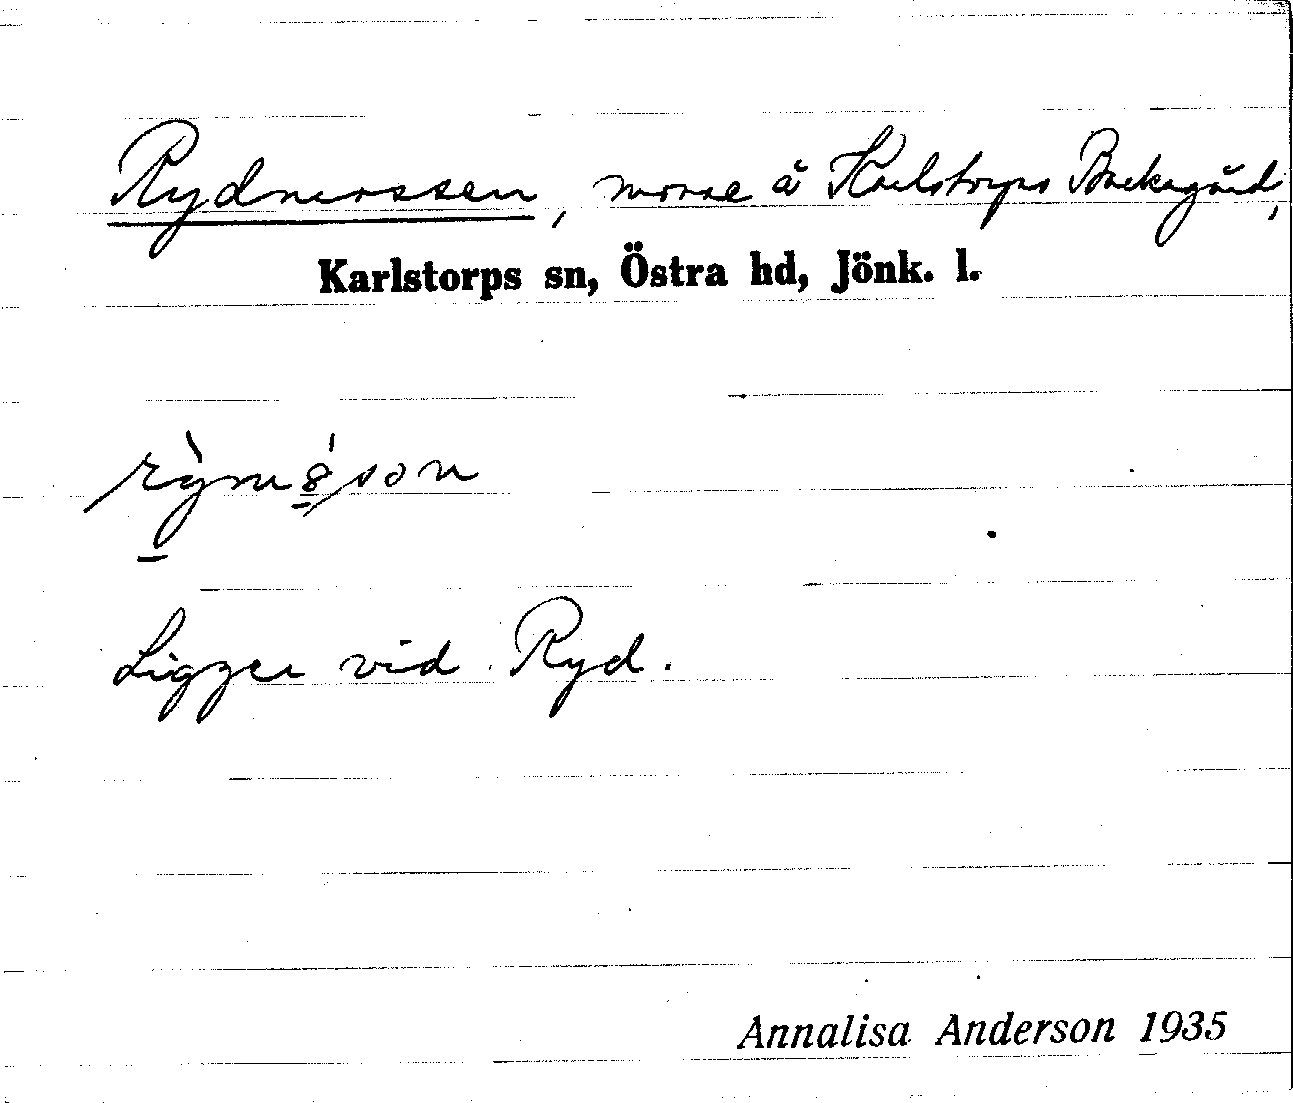 Rydmossen, mosse å Karlstorps Backegård,
Karlstorps sn, Östra hd, Jönk. l.
Ligger vid Ryd.
Annalisa Anderson 1935